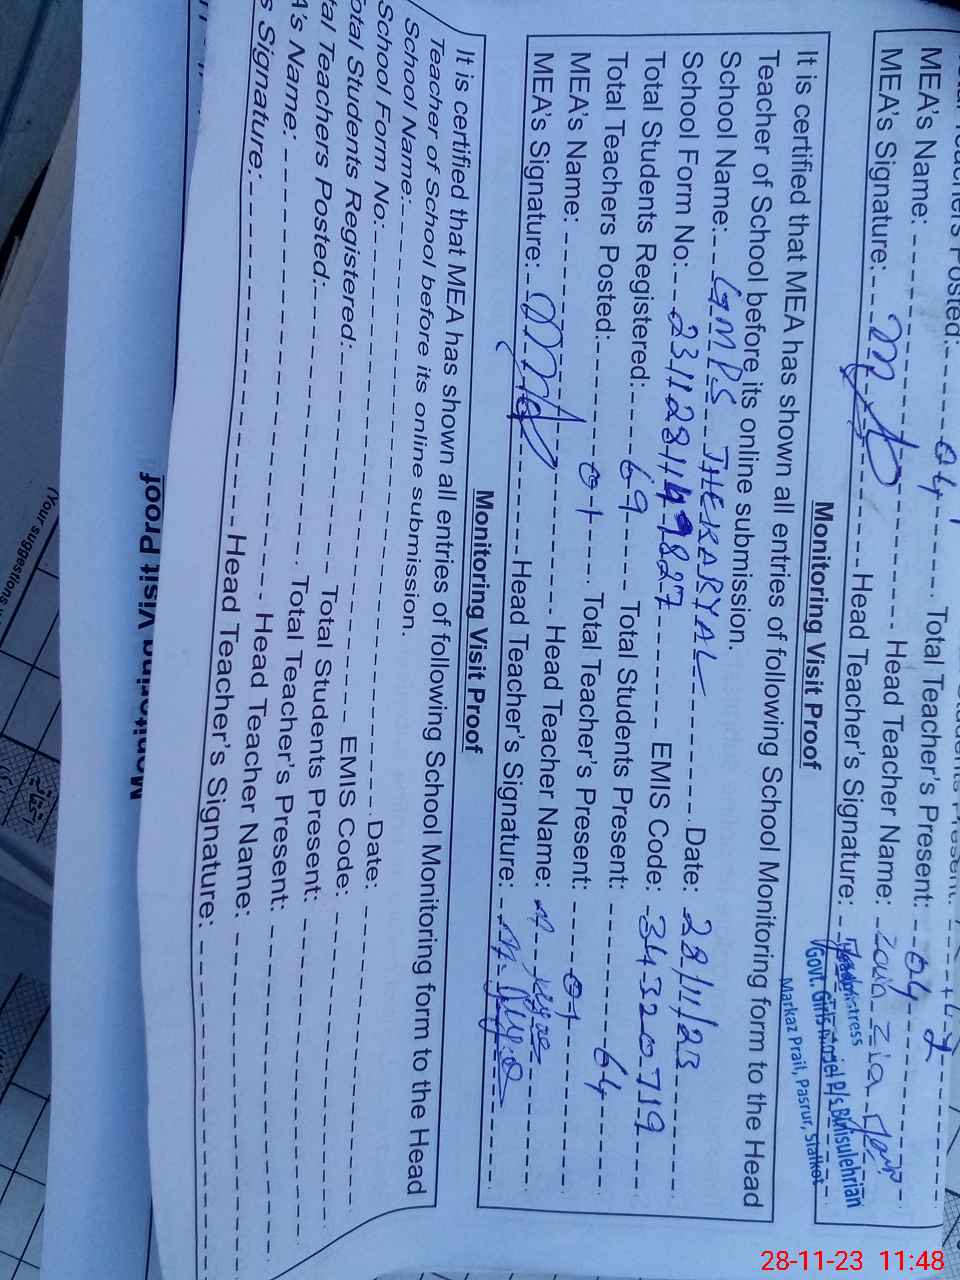 MEA's Name: Head Teacher Name: Zouia Zia
MEA's Signature: Head Teacher's Signature:
04 Total Teacher's Present: 04
Headmistress
Govt. Girls Model P/s
Markaz Prail, Pasrur, Sialkot
Monitoring Visit Proof
It is certified that MEA has shown all entries of following School Monitoring form to the Head
Teacher of School before its online submission.
School Name: GMPS THEKARYAL Date: 28/11/23
School Form No: 2311281149827 EMIS Code: 34320719
Total Students Registered: 69 Total Students Present: 64
Total Teachers Posted: 01 Total Teacher's Present: 01
MEA's Name: Head Teacher Name:
MEA's Signature: Head Teacher's Signature:
Monitoring Visit Proof
It is certified that MEA has shown all entries of following School Monitoring form to the Head
Teacher of School before its online submission.
School Name: Date:
School Form No: EMIS Code:
Total Students Registered: Total Students Present:
Total Teachers Posted: Total Teacher's Present:
Name: Head Teacher Name:
Signature: Head Teacher's Signature:
Monitoring Visit Proof
(Your suggestions
28-11-23 11:48